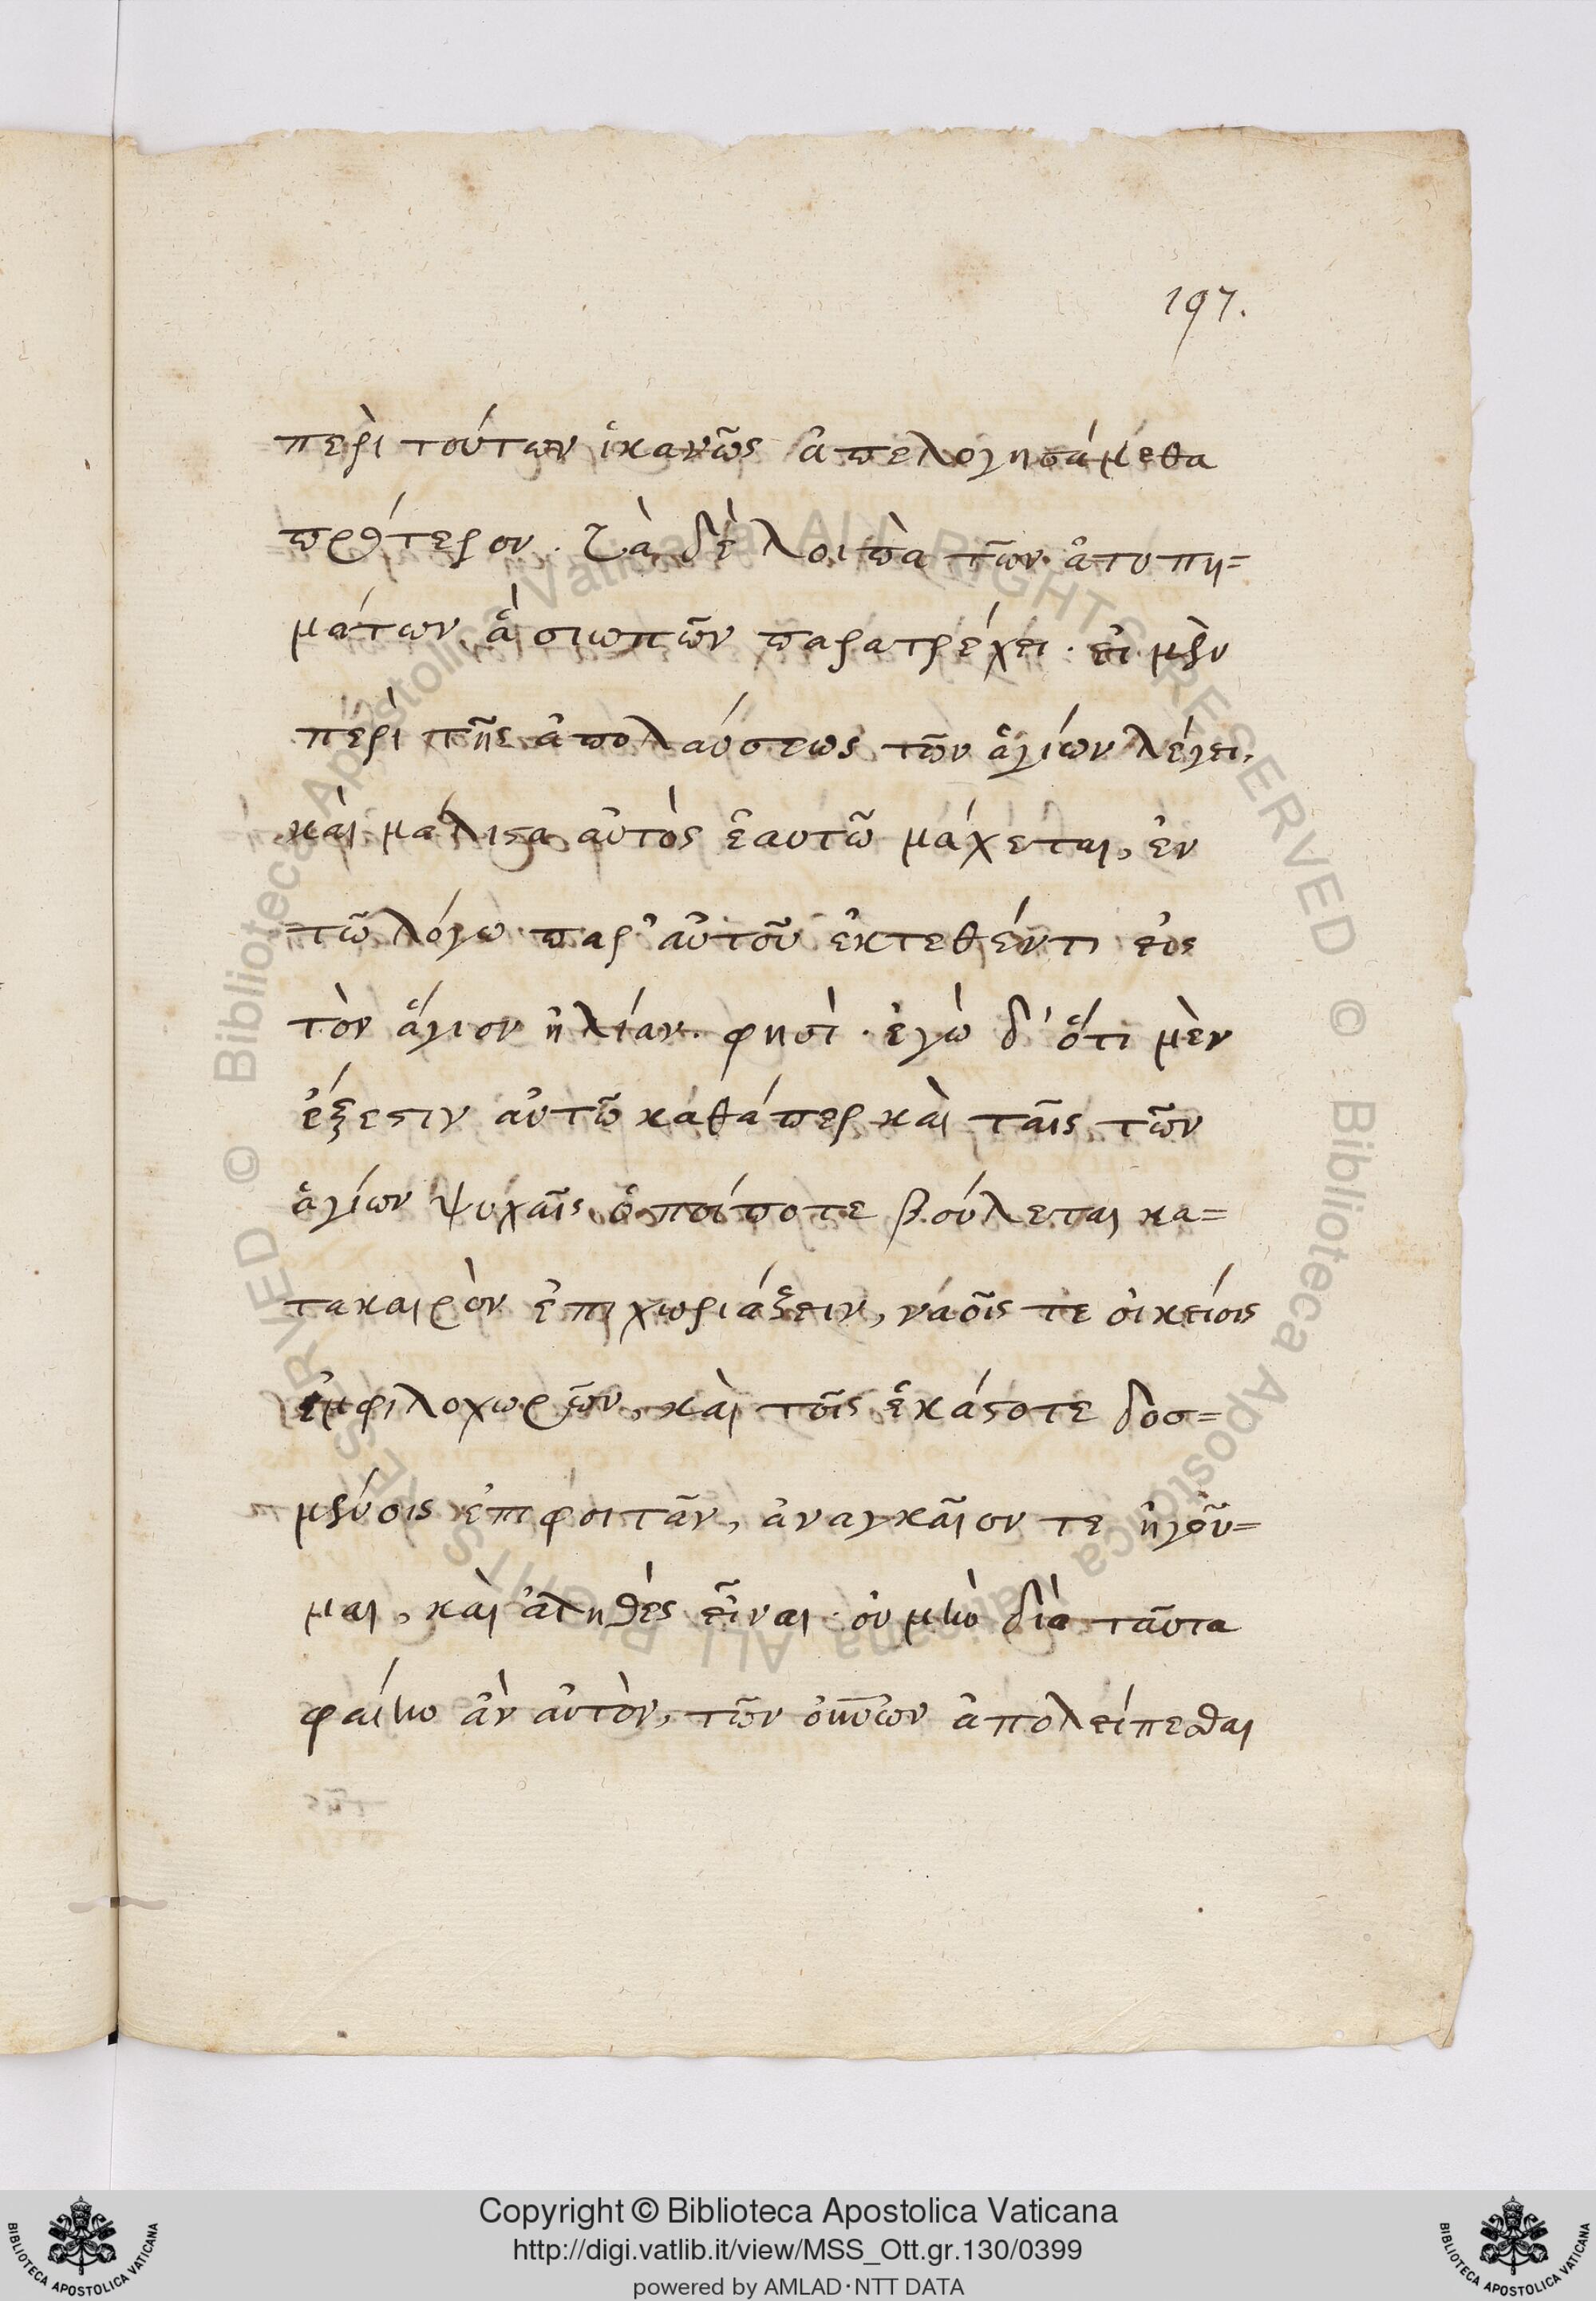 197.
περὶ τούτων ἱκανῶς ἀπελογησάμεθα
πρότερον. Τὰ δὲ λοιπὰ τῶν ἀτοπη=
μάτων ἃ σιωπῶν παρατρέχει. εἰ μὲν
περὶ τῆς ἀπολαύσεως τῶν ἁγίων λέγει,
καὶ μάλιστα αὐτὸς ἑαυτῶ μάχεται, ἐν
τῶ λόγω παρ' αὐτοῦ ἐκτεθέντι εἰς
τὸν ἅγιον ἠλίαν. φησὶ. ἐγὼ δ' ὅτι μὲν
ἔξεστιν αὐτῶ καθάπερ καὶ ταῖς τῶν
ἁγίων ψυχαῖς ὁποίποτε βούλεται κα=
τακαιρὸν ἐπιχωριάζειν, ναοῖς τε οἰκείοις
ἐμφιλοχωρεῖν, καὶ τοῖς ἑκάστοτε δοσ=
μένοις ἐπιφοιτᾶν, ἀναγκαῖον τε ἡγοῦ=
μαι, καὶ ἀληθὲς εἶναι. οὐ μὴν διὰ ταῦτα
φαίην ἂν αὐτὸν, τῶν οὐνῶν ἀπολείπεσθαι
Copyright © Biblioteca Apostolica Vaticana
http://digi.vatlib.it/view/MSS_Ott.gr.130/0399
powered by AMLAD·NTT DATA
BIBLIOTECA APOSTOLICA VATICANA
BIBLIOTECA APOSTOLICA VATICANA
© Biblioteca Apostolica Vaticana ALL RIGHTS RESERVED
© Biblioteca Apostolica Vaticana ALL RIGHTS RESERVED